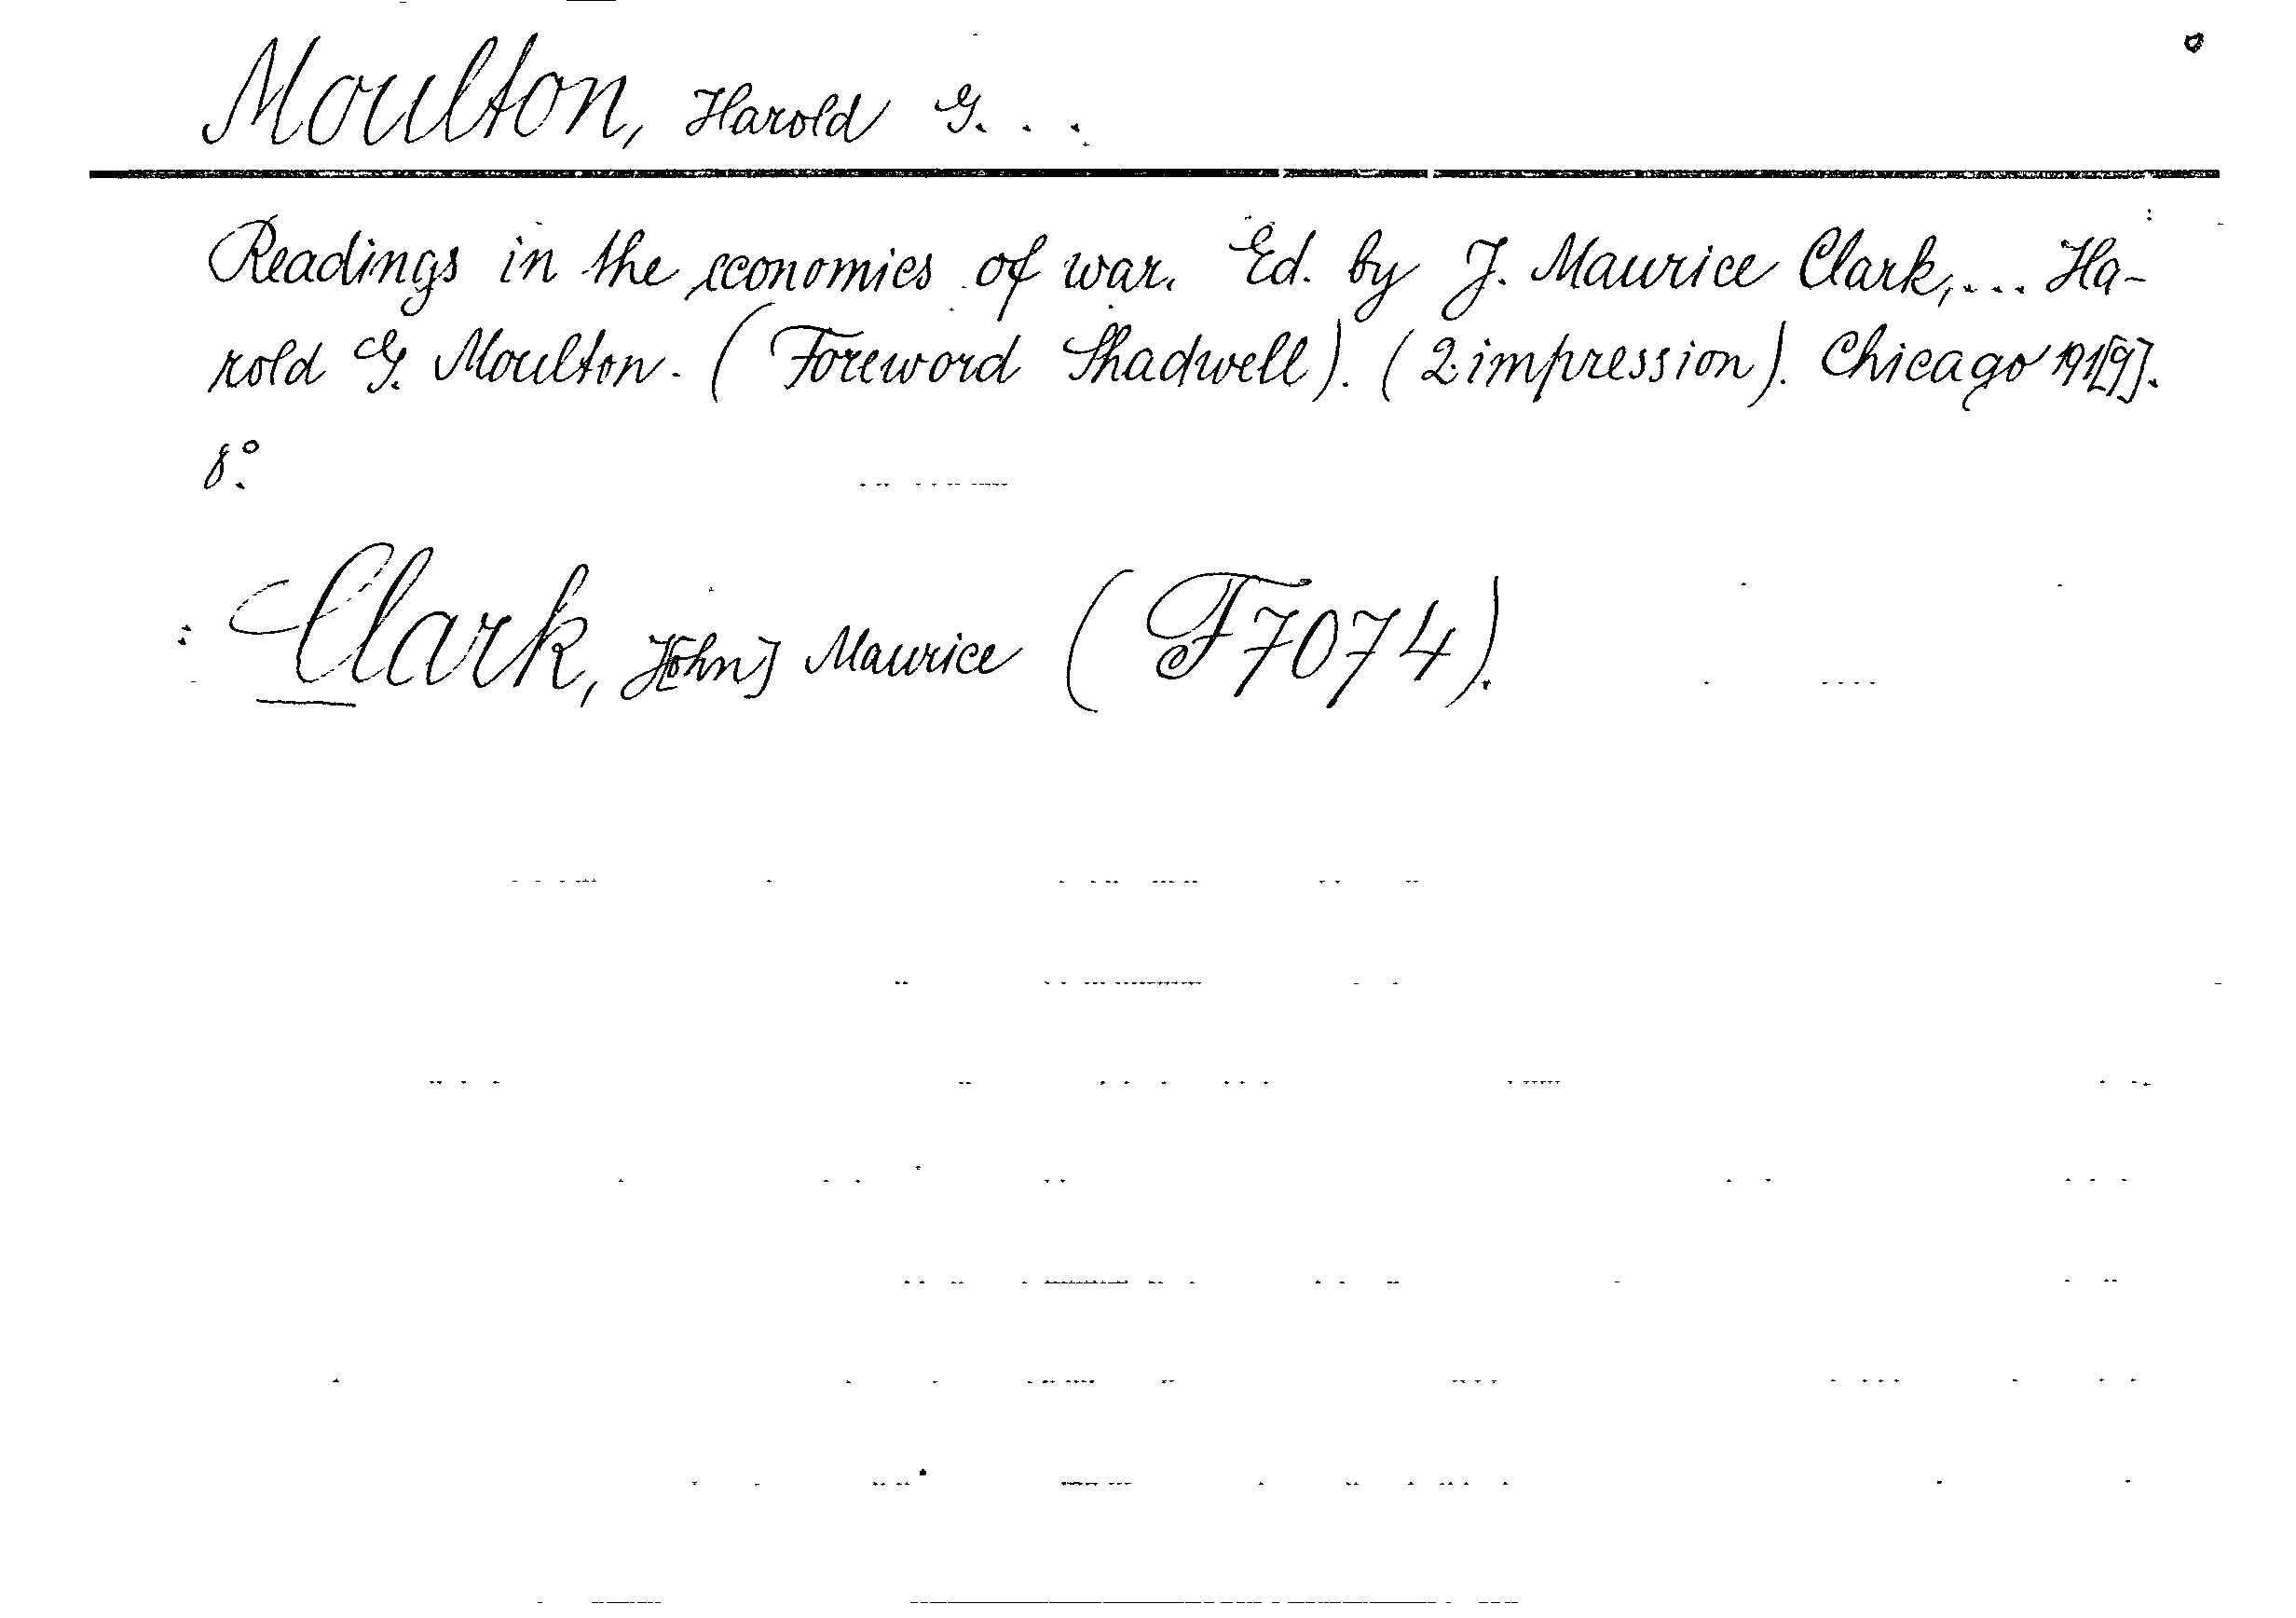 Moulton, Harold G. . .
Readings in the economics of war. Ed. by J. Maurice Clark, ... Ha-
rold G. Moulton. (Foreword Shadwell). (2. impression). Chicago 191[9].
8°.
: Clark, J[ohn] Maurice (F7074).